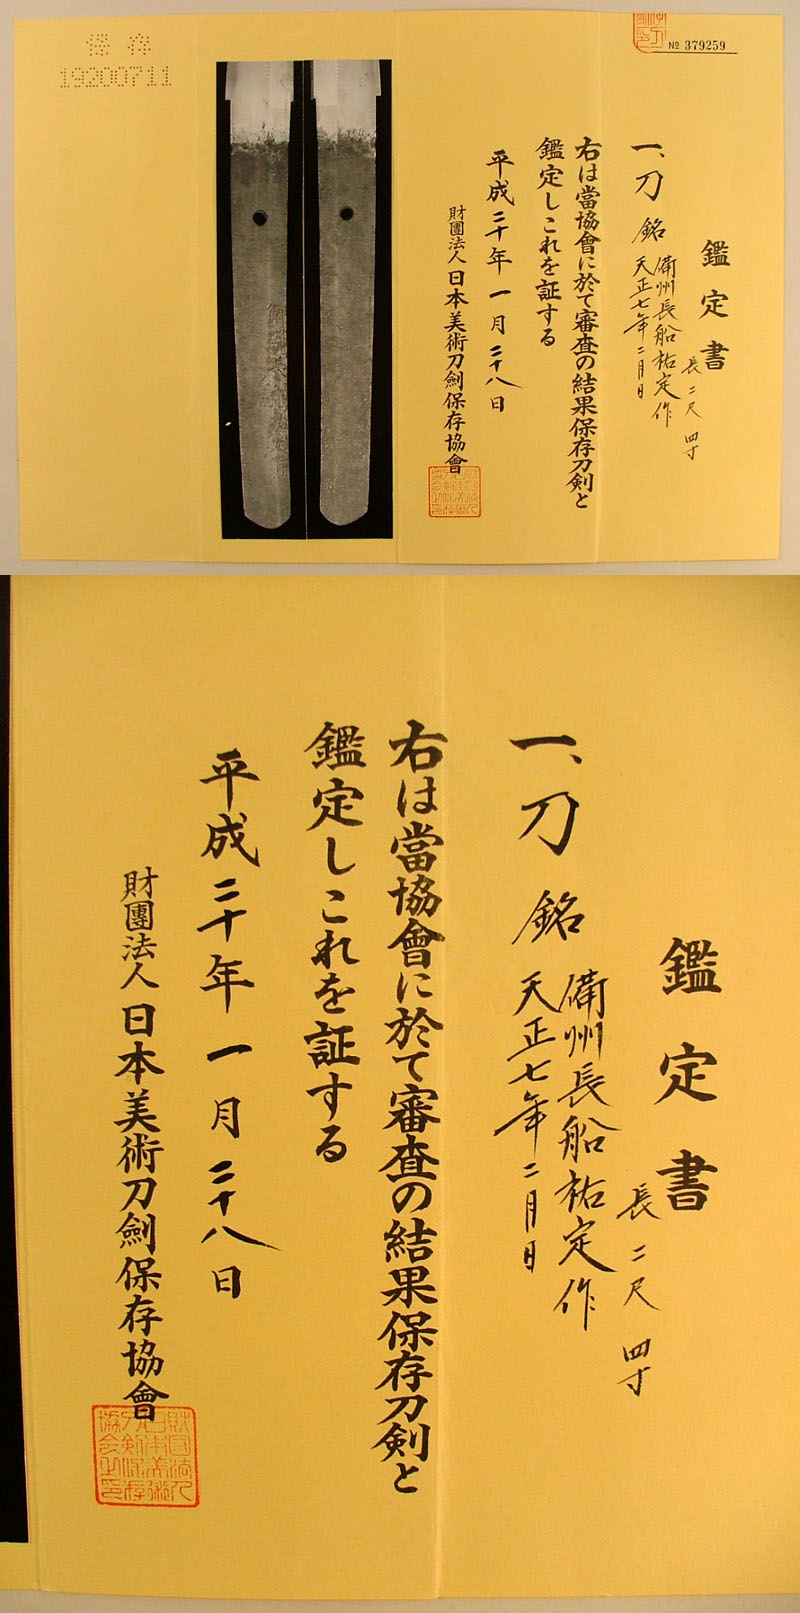 保存
19200711
№ 379259
鑑定書
長二尺四寸
一、刀銘備州長船祐定作
天正七年二月日
右は當協會に於て審査の結果保存刀剣と
鑑定しこれを証する
平成二十年一月二十八日
財團法人日本美術刀劍保存協會
鑑定書
長二尺四寸
一、刀銘備州長船祐定作
天正七年二月日
右は當協會に於て審査の結果保存刀剣と
鑑定しこれを証する
平成二十年一月二十八日
財團法人日本美術刀劍保存協會